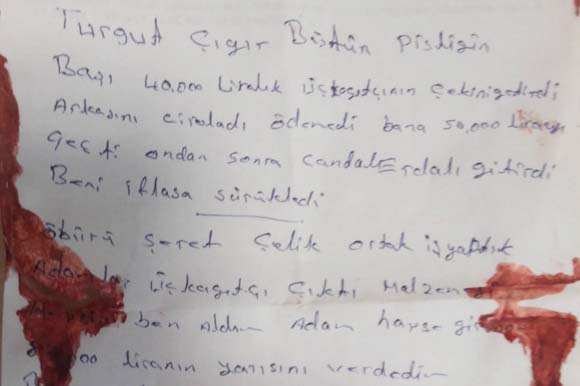 Turgut Çıgır Bütün Pisligin
Başı 40.000 Liralık üçkagıtçının Çekini getirdi
Arkasını ciroladı ödenedi bana 50.000 liraya
geçti ondan sonra Candal Erdalı gitirdi
Beni iflasa sürükledi
öbürü Şeref Çelik ortak iş yaptık
Adamlar üçkagıtçı Çıktı Malzeme
ben Aldım Adam hapse
liranın yarısını verdedim